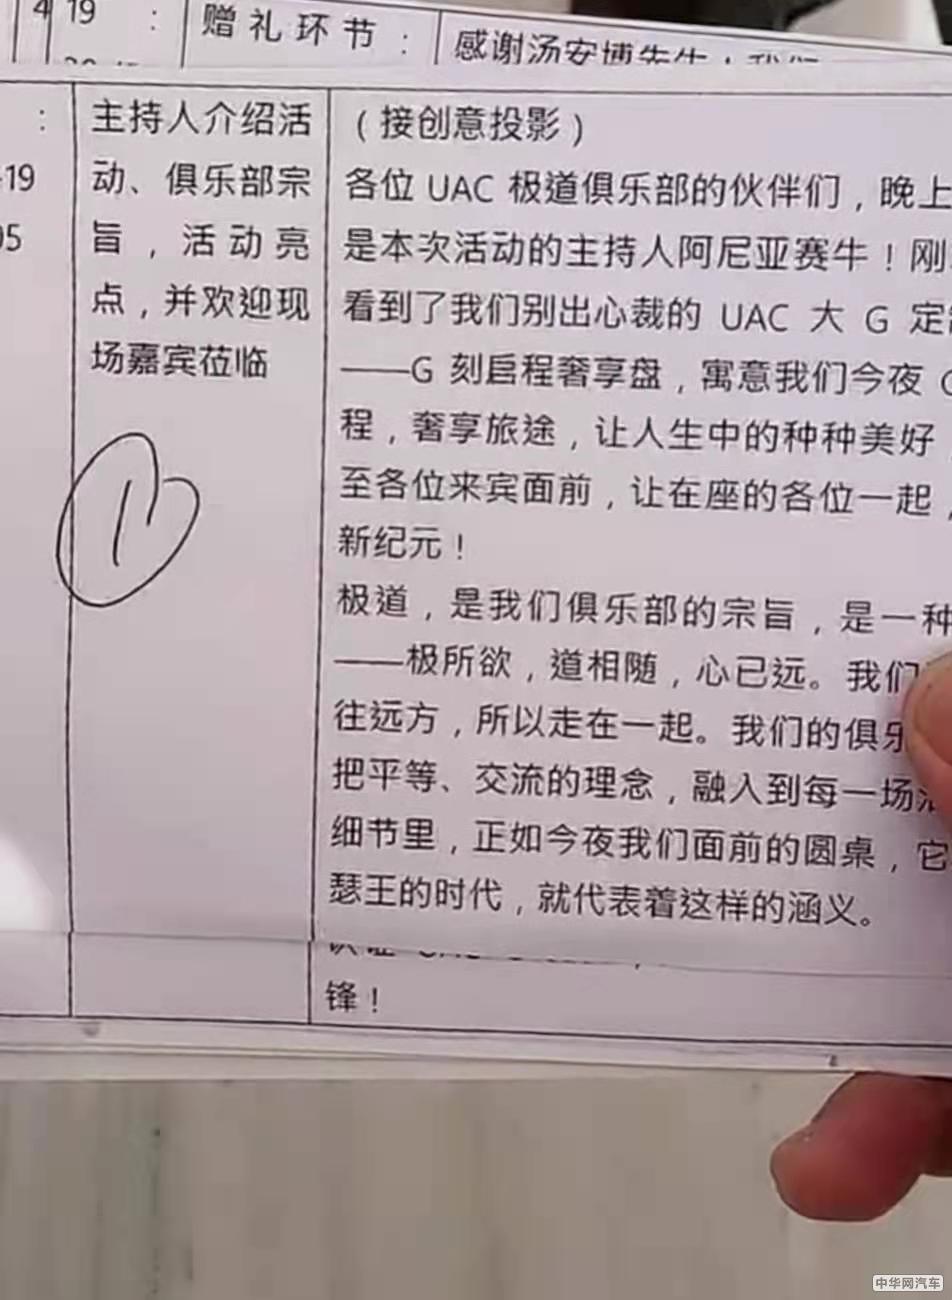 4 19 : 赠礼环节: 感谢汤安博先生!我们
:
19
05
主持人介绍活
动、俱乐部宗
旨,活动亮
点,并欢迎现
场嘉宾莅临
1
(接创意投影)
各位 UAC 极道俱乐部的伙伴们,晚上
是本次活动的主持人阿尼亚赛牛!刚
看到了我们别出心裁的 UAC 大 G 定
——G 刻启程奢享盘,寓意我们今夜 G
程,奢享旅途,让人生中的种种美好,
至各位来宾面前,让在座的各位一起,
新纪元!
极道,是我们俱乐部的宗旨,是一种
——极所欲,道相随,心已远。我们
往远方,所以走在一起。我们的俱乐
把平等、交流的理念,融入到每一场活
细节里,正如今夜我们面前的圆桌,它
瑟王的时代,就代表着这样的涵义。
锋!
中华网汽车